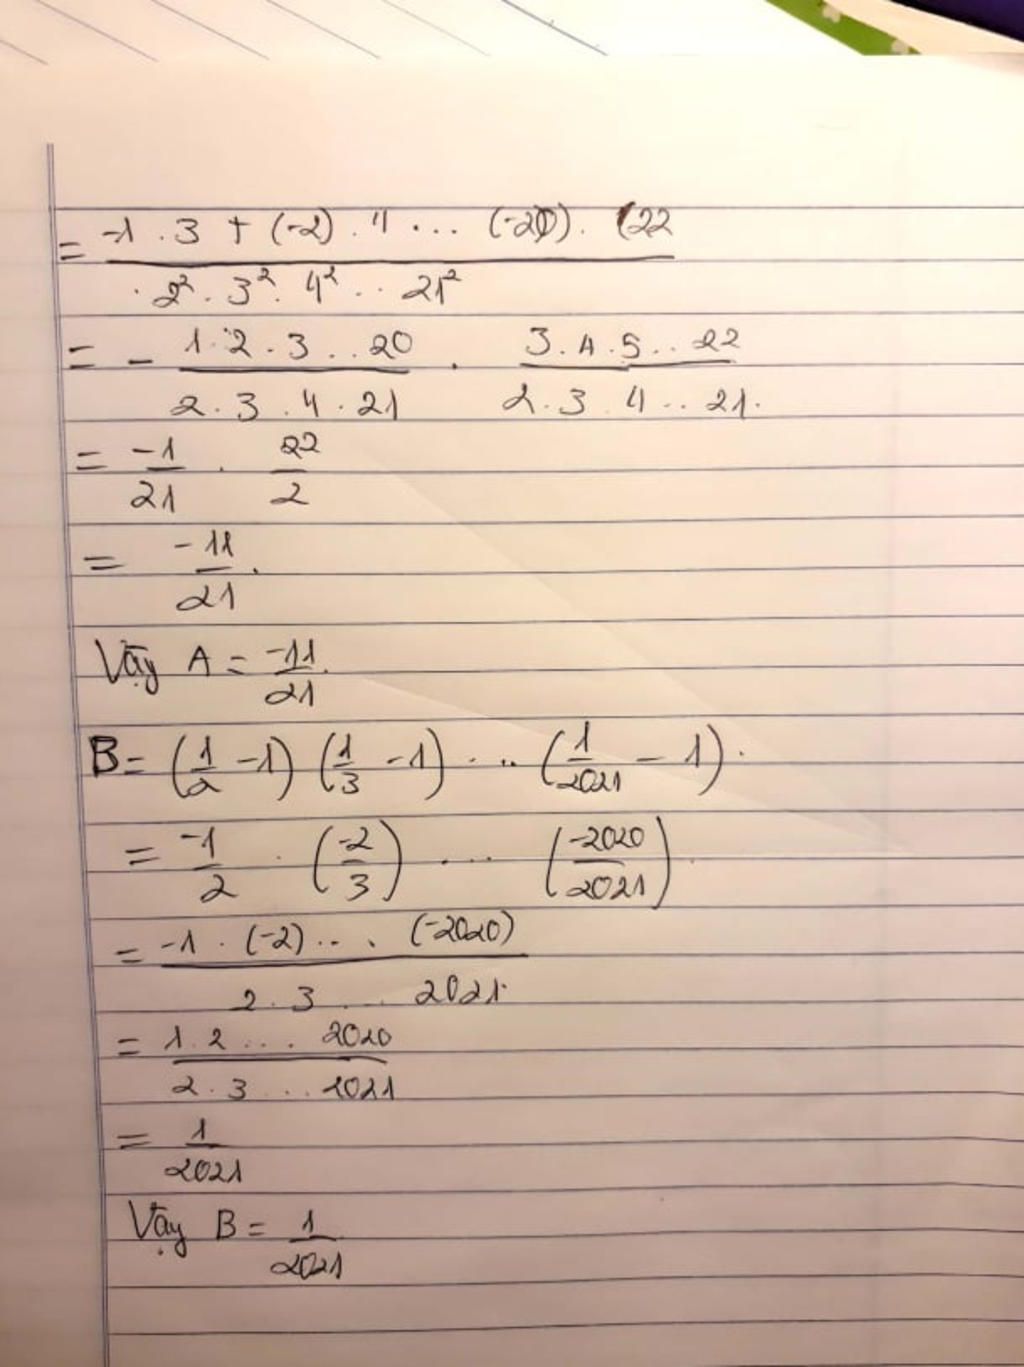 = -1 . 3 + (-2) . 4 ... (-20) . (22
. 2² . 3² . 4² .. 21²
= - 1.2.3..20 . 3.4.5..22
2.3.4.21 2.3.4..21.
= -1 . 22
21 2
= -11 .
21
Vậy A = -11 .
21
B = (1/2 -1) (1/3 -1) ... (1/2021 - 1).
= -1/2 . (-2/3) .... (-2020/2021).
= -1 . (-2) ... (-2020)
2.3 ... 2021.
= 1.2 .... 2020
2.3 ... 2021
= 1
2021
Vậy B = 1
2021